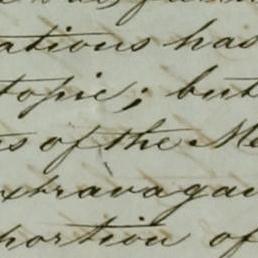 ations has
topic; but
s of the Me
extravagan
portion of